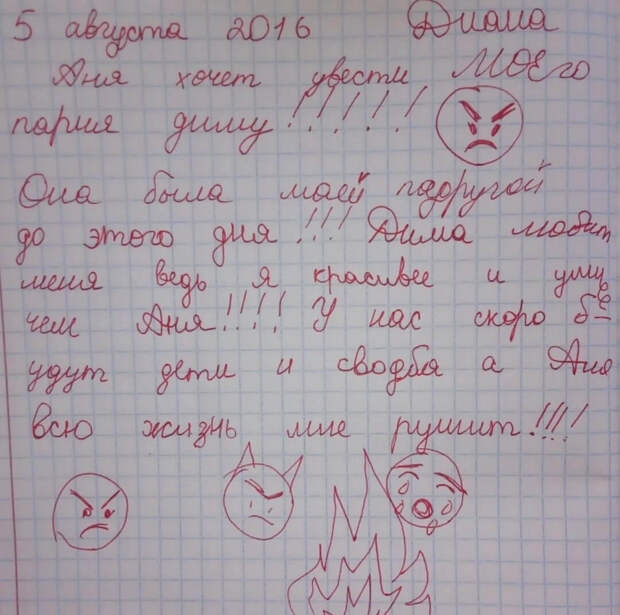 5 августа 2016 Диана
Аня хочет увести моего
парня диму!!!!!
Она была маей падругой
до этого дня!!! Дима любит
меня ведь я красивее и умн
чем Аня!!!! У нас скоро б-
удут дети и сводба а Аня
всю жизнь мне рушит!!!!